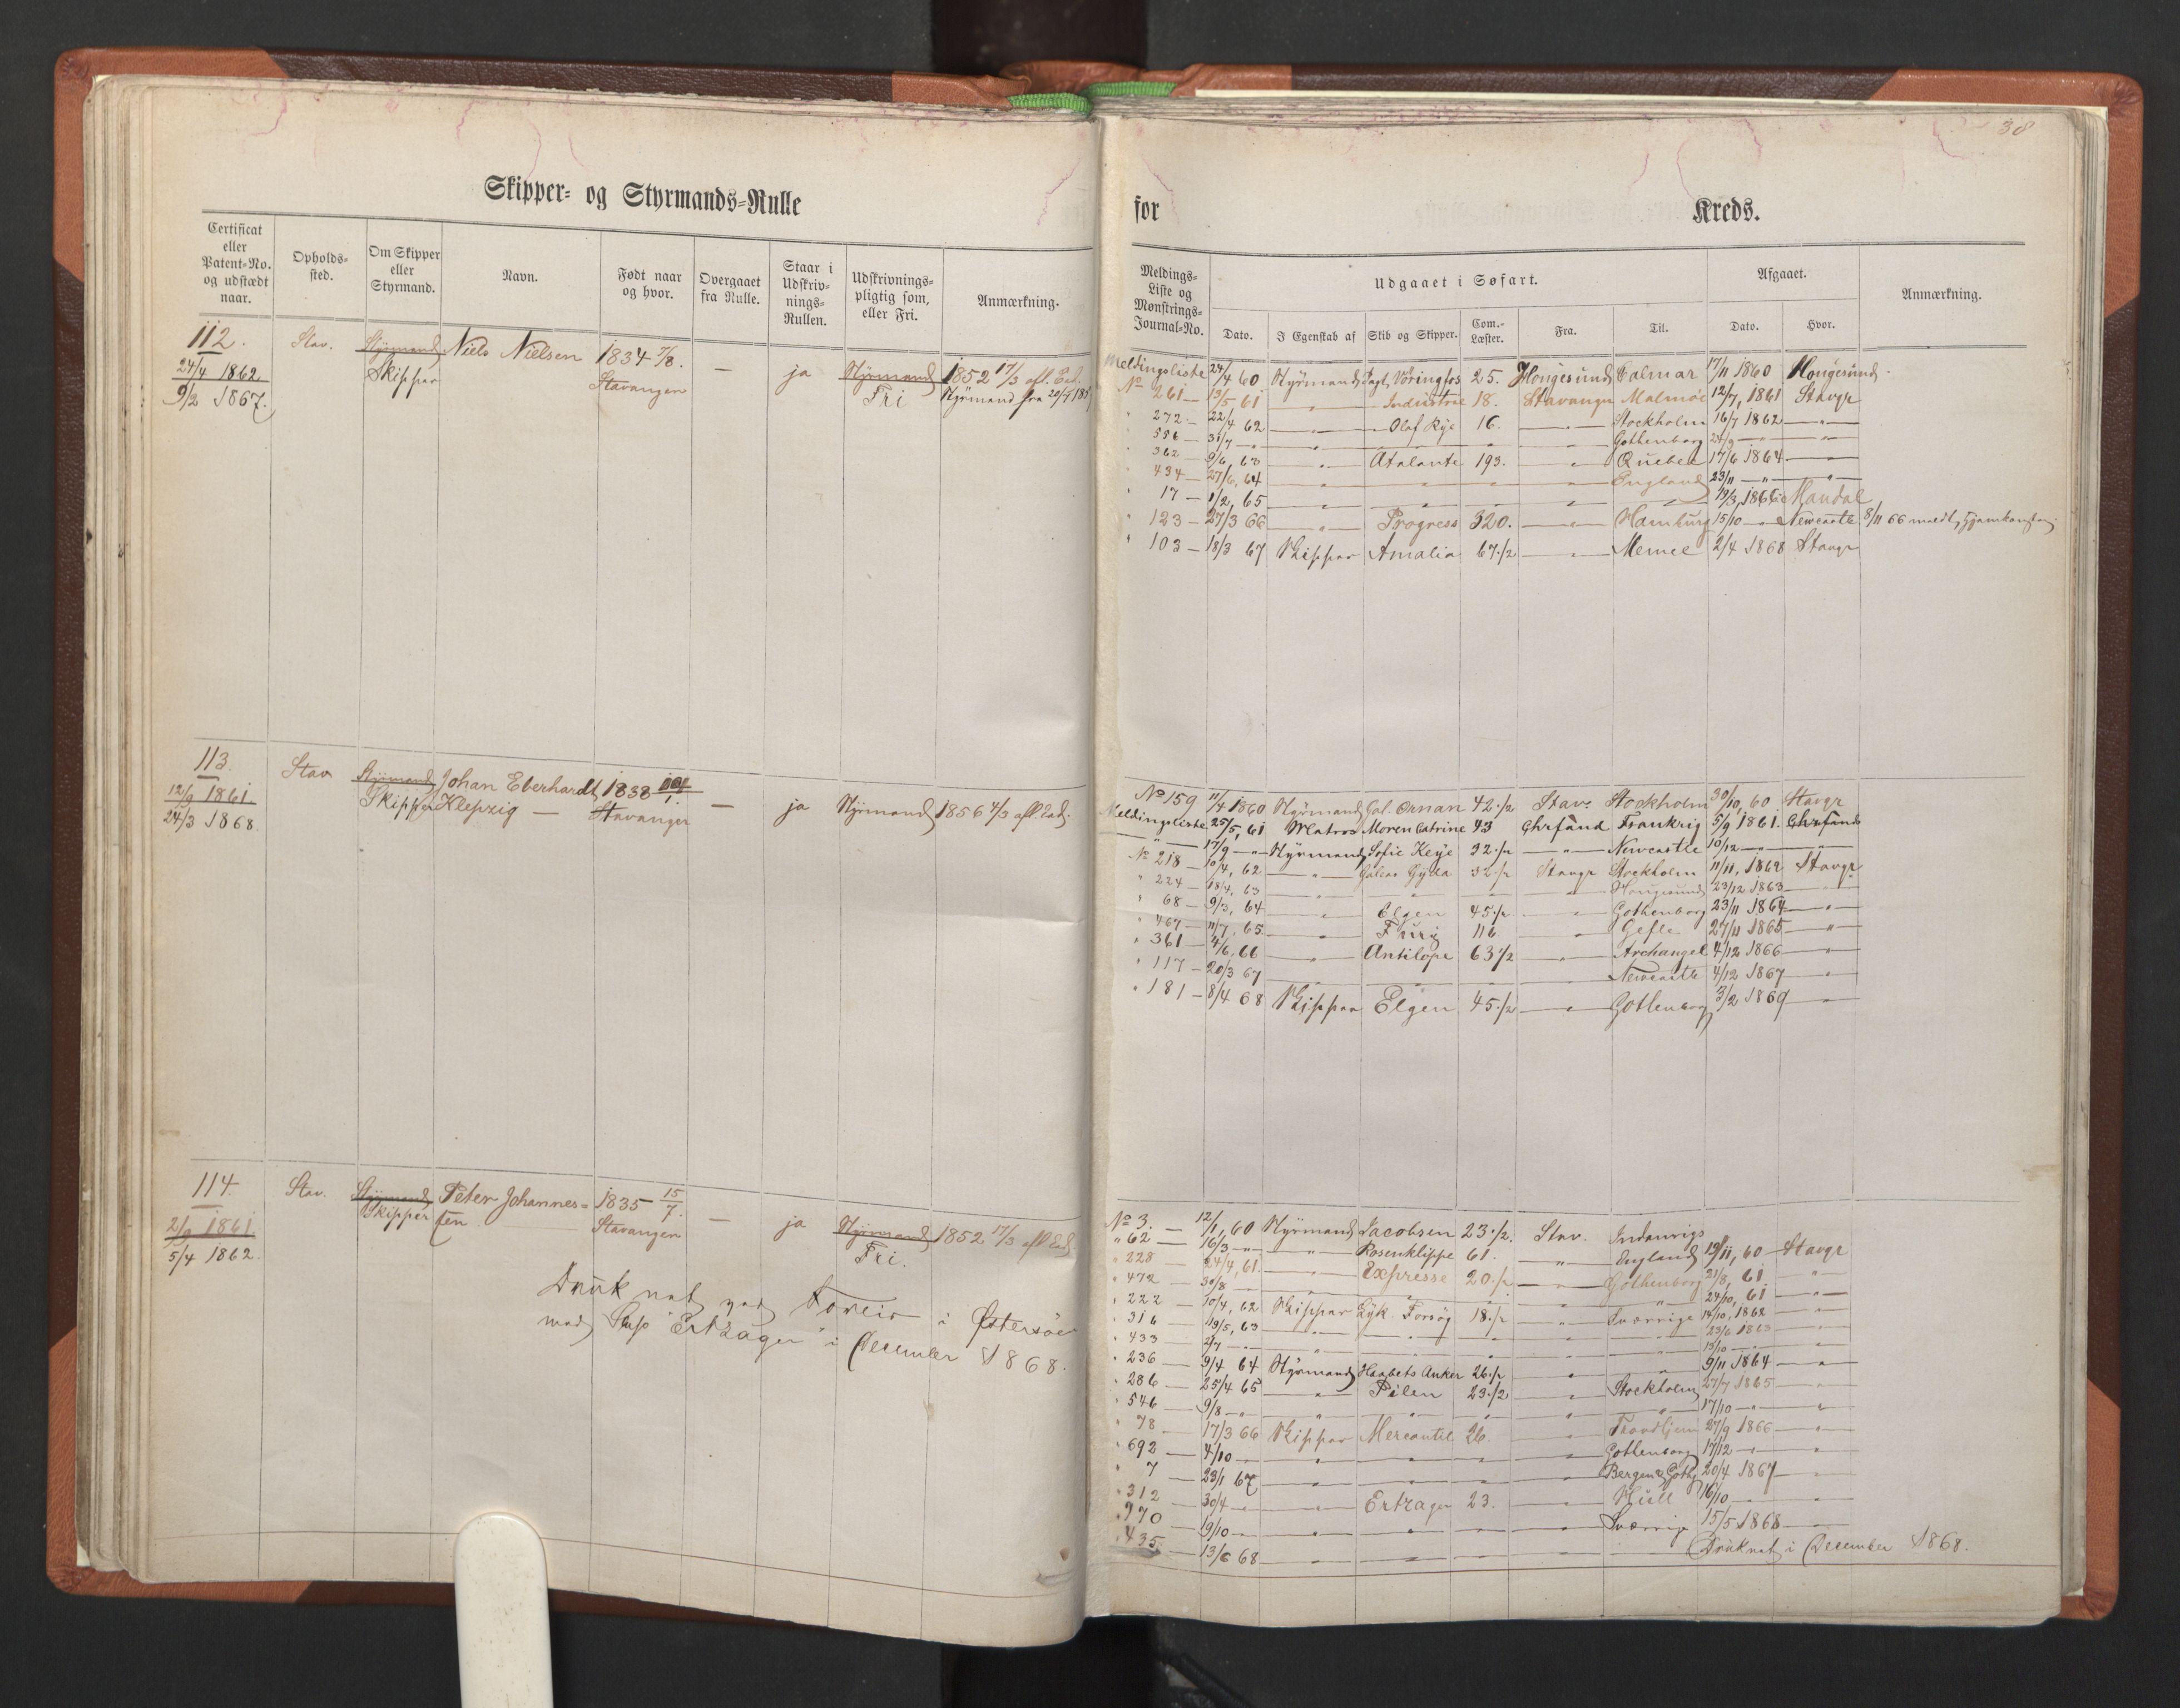 38
Skipper- og Styrmands-Rulle
for Kreds.
Certificat eller Patent-No. og udstædt naar.
Opholds-sted.
Om Skipper eller Styrmand.
Navn.
Født naar og hvor.
Overgaaet fra Rulle.
Staar i Udskriv-nings-Rullen.
Udskrivnings-pligtig som, eller Fri.
Anmærkning.
Meldings-Liste og Mønstrings-Journal-No.
Udgaaet i Søfart.
Dato. I Egenskab af Skib og Skipper. Com.-Læster. Fra. Til.
Afgaaet.
Dato. Hvor.
Anmærkning.
112. Stav. Styrmand Niels Nielsen 1834 7/8. — ja Styrmand 1852 17/3 afl. Eed.
24/4 1862 Skipper Stavanger Fri Styrmand fra
9/2 1867.
Meldingsliste 24/4 60 Styrmand Jagt Vöringfos 25. Hougesund Calmar 17/11 1860 Hougesund.
No 261 — 13/5 61 — " — Industrie 18. Stavanger Malmöe 12/7, 1861 Stavgr
" 272 — 22/4 62 — " — Olaf Rye 16. — " — Stockholm 16/7 1862 — " —
" 556 — 31/7 — " — Gothenborg 24/9 — " —
" 362 — 9/6, 63 — " — Atalante 193. — " — Quebec 17/6 1864 — " —
" 434 — 27/6, 64 — " — England 23/11 — " —
" 17 — 1/2, 65 — " — 19/3, 1866 Mandal
" 123 — 27/3 66 — " — Progress 320. — " — Hamburg 15/10 — " — Newcastle 8/11 66 meldt Hjemkomsten
" 103 — 18/3 67 Skipper Amalia 67 1/2 — " — Memel 2/4 1868 Stavgr
113. Stav Styrmand Johan Eberhardt 1838 — ja Styrmand 1856 4/3 afl. Eed.
12/9 1861. Skipper Klepzig — Stavanger
24/3 1868.
No 159 11/4 1860 Styrmand Gal. Ornan 42 1/2 Stav. Stockholm 30/10, 60 Stavgr
Meldingsliste 25/5, 61 Matros Moren Catrine 43 Chrsand Frankrig 5/9 1861. Chrsand
" — 17/9 — " — Styrmand Sofie Keye 32 1/2 — " — Newcastle 10/12 — " —
No 218 — 10/4, 62 — " — Galeas Gyda 32 1/2 Stavgr Stockholm 11/11, 1862 Stavgr
" 224 — 18/4, 63 — " — Hougesund 23/12 1863 — " —
" 68 — 9/3, 64 — " — Elgen 45 1/2 — " — Gothenborg 23/11 1864 — " —
" 467 — 11/7, 65. — " — 116 — " — Gefle 27/11 1865 — " —
" 361 — 4/6, 66 — " — Antilope 63 1/2 — " — Archangel 4/12 1866 — " —
" 117 — 20/3 67 — " — Newcastle 4/12 1867 — " —
" 181 — 8/4 68 Skipper Elgen 45 1/2 — " — Gothenborg 3/2 1869 — " —
114. Stav. Styrmand Peter Johannes= 1835 15/7. — ja Styrmand 1852 17/3 afl. Eed.
2/9 1861 Skipper sen Stavanger Fri.
5/4 1862.
Druknet ved Forlis i Østersöen
med Slup "Ertzager" i December 1868.
No 3. — 12/1, 60 Styrmand Jacobsen 23 1/2. Stav. Indenrigs
" 62 — 16/3 — " — Rosenklippe 61. " England 19/11, 60 Stavgr
" 228 — 24/4, 61. — " — Expresse 20 1/2 — " — Gothenborg 21/8, 61. — " —
" 472 — 30/8 — " — 24/10, 61 — " —
" 222 — 10/4, 62 Skipper Lyk. Forsøg 18 1/2 — " — Sverrige 14/10, 1862 — " —
" 316 — 19/5, 63 — " — 23/6 1863 — " —
" 433 — 2/7 — " — 13/10 — " —
" 236 — 9/4 64 Styrmand Haabets Anker 26 1/2 — " — 9/11 1864 — " —
" 286 — 25/4 65 — " — Pilen 23 1/2 — " — Stockholm 27/7 1865 — " —
" 546 — 9/8 — " — 17/10 — " —
" 78 — 17/3 66 Skipper Mercantil 26. — " — Trondhjem 27/9 1866 — " —
" 692 — 4/10 — " — Gothenborg 17/12 — " —
" 7 — 23/1 67 — " — Bergen & Gothg 20/4 1867 — " —
" 312 — 30/4 — " — Ertzager 23. — " — Hull 16/10 — " —
" 970 — 19/10 — " — Sverrige 15/5 1868 — " —
" 435 — 13/6 68 — " — Druknet i December 1868.